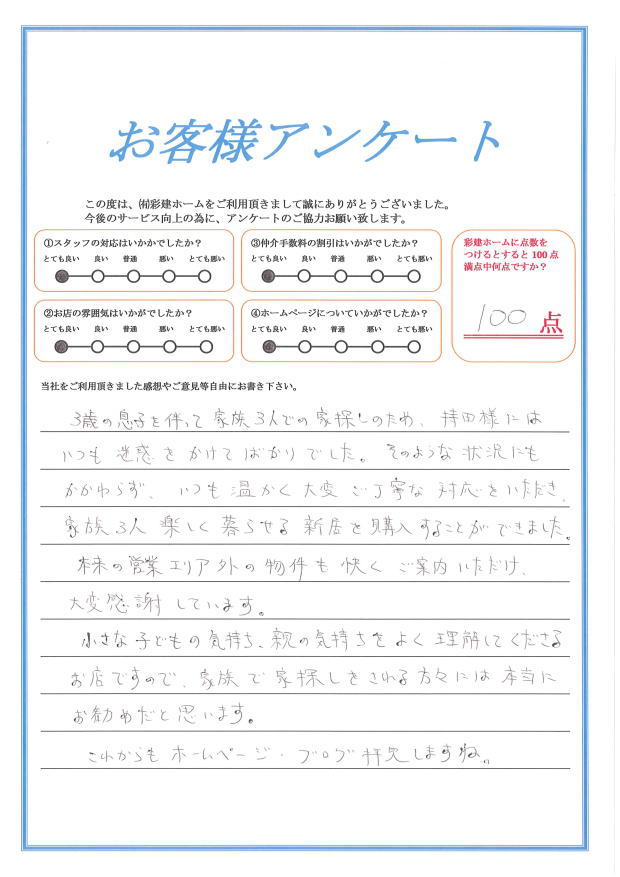 お客様アンケート
この度は、㈲彩建ホームをご利用頂きまして誠にありがとうございました。
今後のサービス向上の為に、アンケートのご協力お願い致します。
①スタッフの対応はいかかでしたか？
とても良い 良い 普通 悪い とても悪い
③仲介手数料の割引はいかがでしたか？
とても良い 良い 普通 悪い とても悪い
彩建ホームに点数を
つけるとすると100点
満点中何点ですか？
100 点
②お店の雰囲気はいかがでしたか？
とても良い 良い 普通 悪い とても悪い
④ホームページについていかがでしたか？
とても良い 良い 普通 悪い とても悪い
当社をご利用頂きました感想やご意見等自由にお書き下さい。
3歳の息子を伴って家族3人での家探しのため、持田様には
いつも迷惑をかけてばかりでした。そのような状況にも
かかわらず、いつも温かく大変ご丁寧な対応をいただき、
家族3人楽しく暮らせる新居を購入することができました。
本来の営業エリア外の物件も快くご案内いただけ、
大変感謝しています。
小さな子どもの気持ち、親の気持ちをよく理解してくださる
お店ですので、家族で家探しをされる方々には本当に
お勧めだと思います。
これからもホームページ・ブログ拝見しますね。